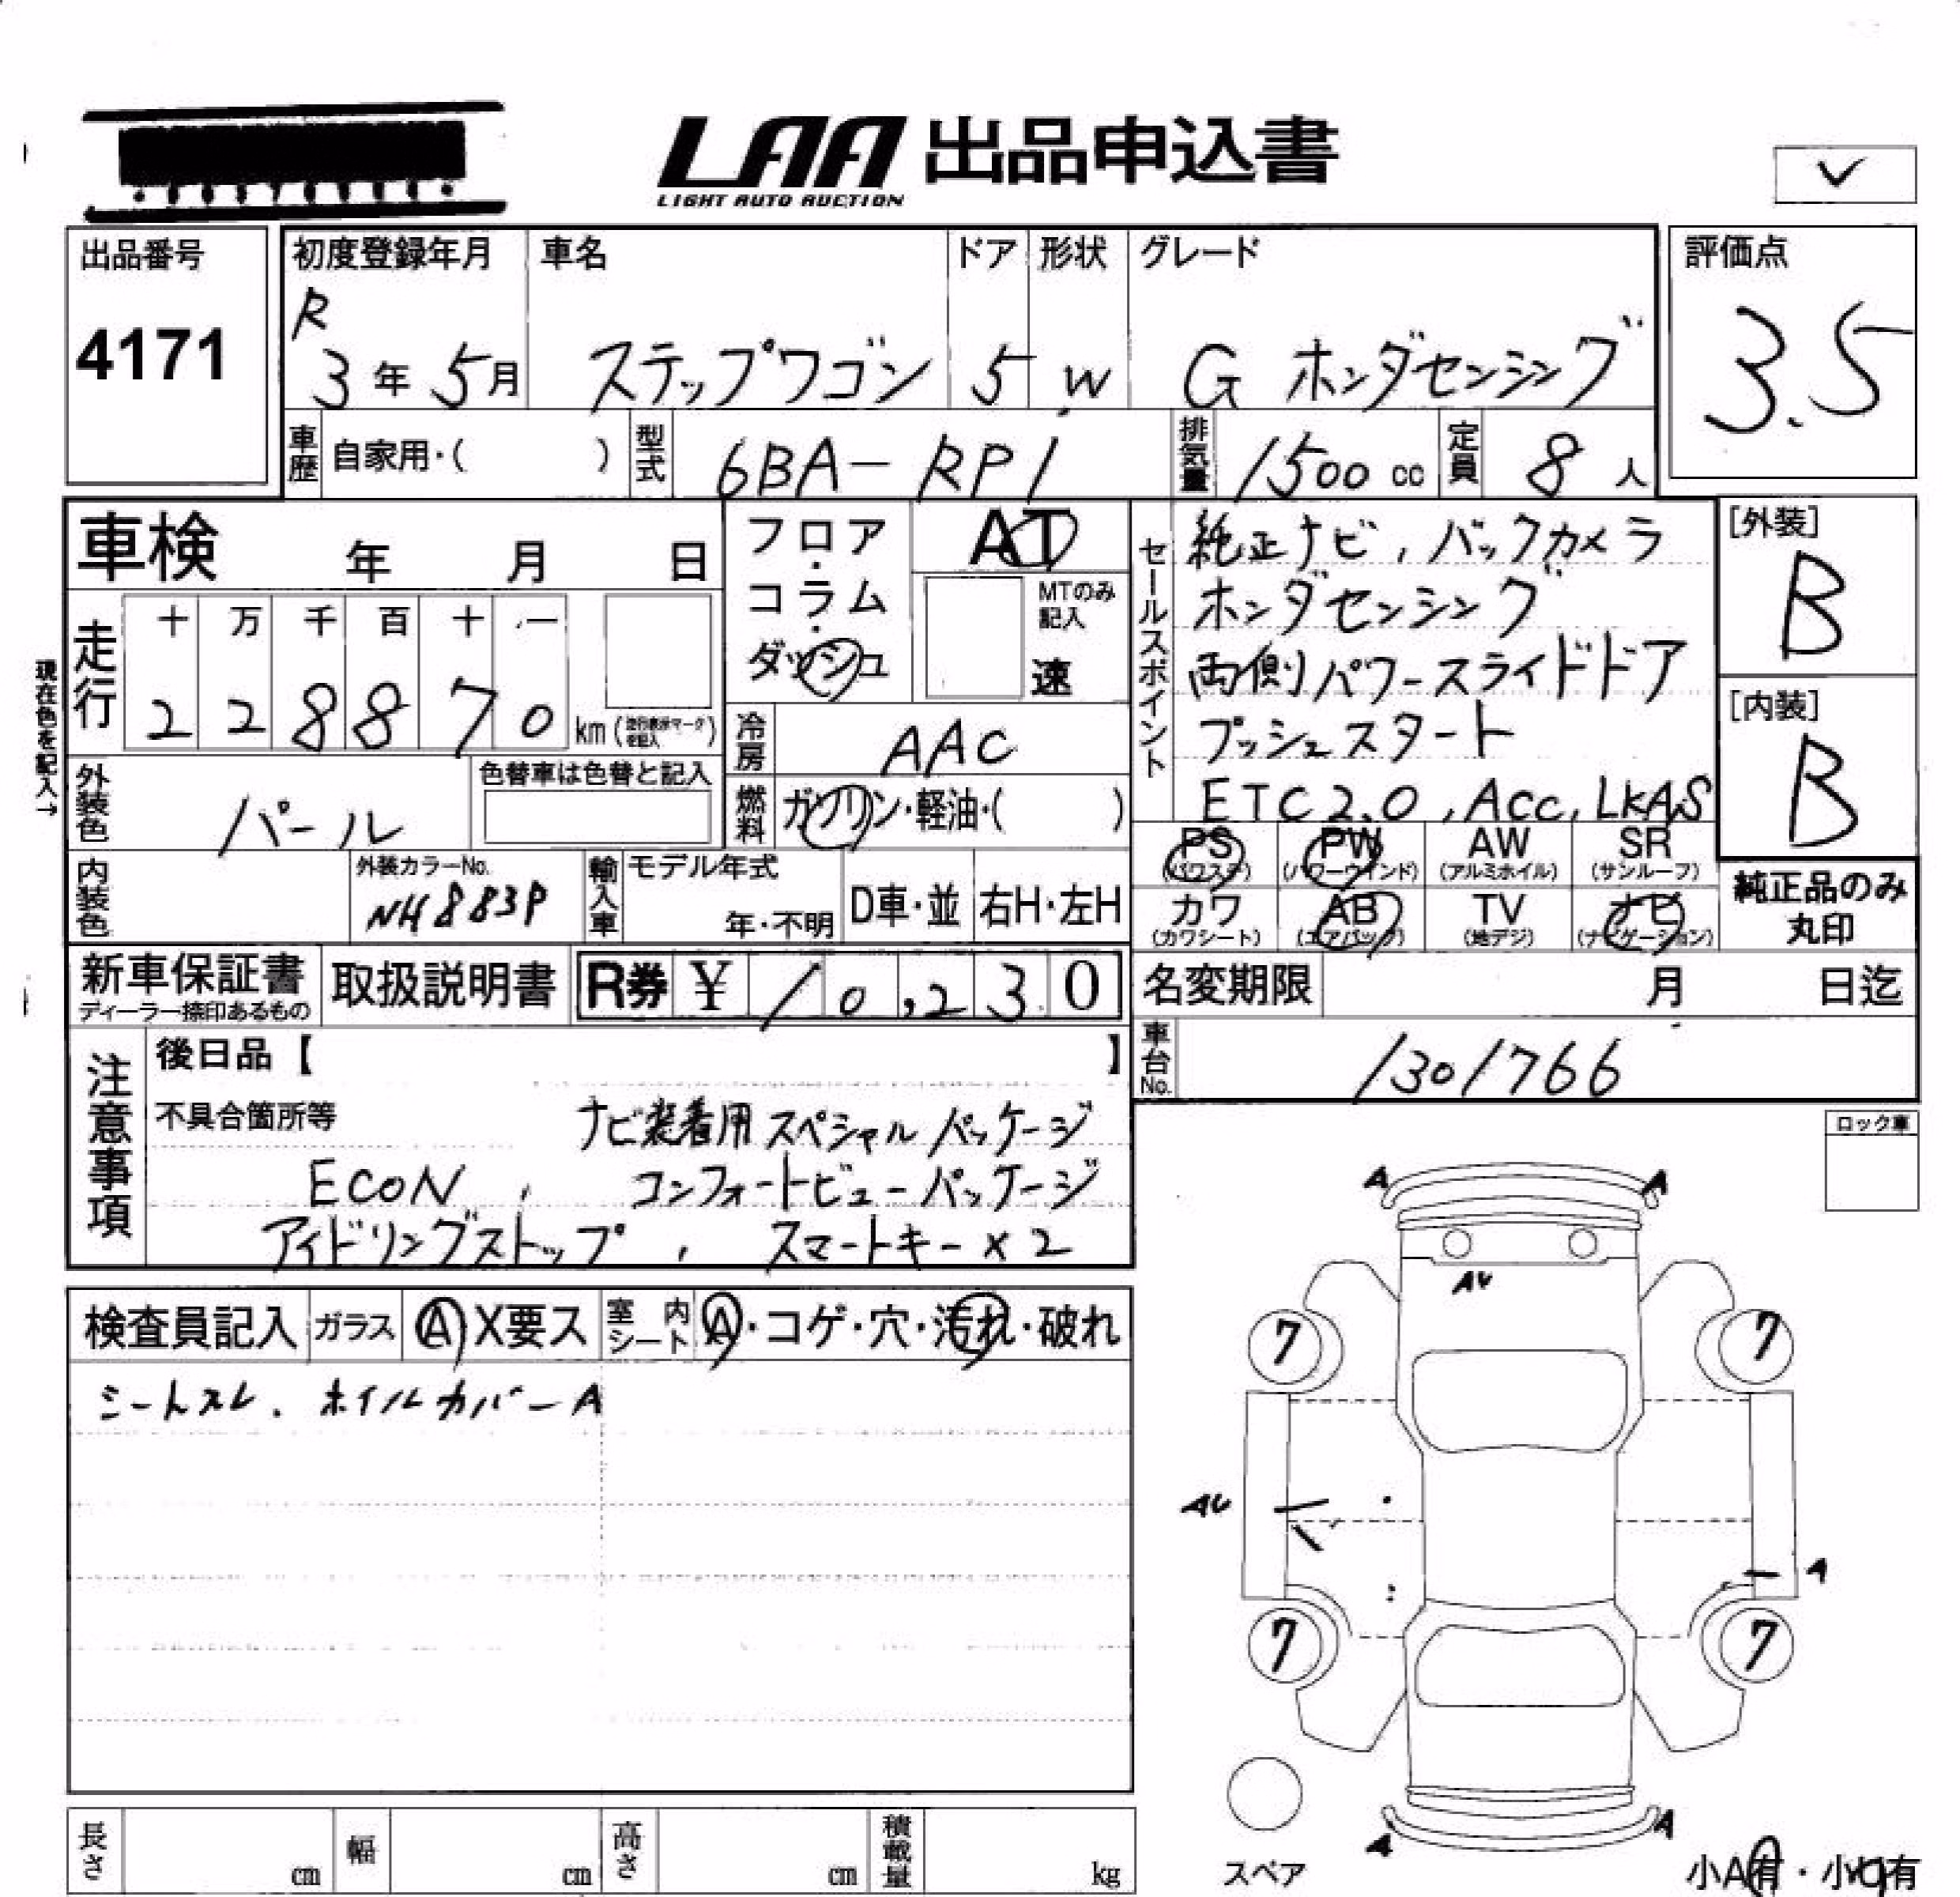 LAA 出品申込書
LIGHT AUTO AUCTION
出品番号
4171
初度登録年月
R
3年 5月
車名
ステップワゴン
ドア
5
形状
W
グレード
G ホンダセンシング
評価点
3.5
車歴 自家用・( )
型式 6BA-RP1
排気量 1500 cc
定員 8 人
車検 年 月 日
フロア・コラム・ダッシュ
AT
MTのみ記入
速
走行 十 万 千 百 十 一
2 2 8 8 7 0 km
現在色を記入→
冷房 AAC
外装色 パール
色替車は色替と記入
燃料 ガソリン・軽油・( )
内装色
外装カラーNo.
NH883P
輸入車 モデル年式
年・不明
D車・並 右H・左H
セールスポイント
純正ナビ, バックカメラ
ホンダセンシング
両側パワースライドドア
プッシュスタート
ETC2.0, ACC, LKAS
[外装]
B
[内装]
B
PS PW AW SR
(パワステ) (パワーウインド) (アルミホイル) (サンルーフ)
カワ AB TV ナビ
(カワシート) (エアバック) (地デジ) (ナビゲーション)
純正品のみ
丸印
新車保証書
ディーラー捺印あるもの
取扱説明書
R券 ¥ 10,230
名変期限 月 日迄
車台No. 1301766
注意事項
後日品【 】
不具合箇所等
ナビ装着用スペシャルパッケージ
ECON, コンフォートビューパッケージ
アイドリングストップ, スマートキー×2
ロック車
検査員記入 ガラス A X要ス 室内シート A・コゲ・穴・汚れ・破れ
シートスレ. ホイルカバーA
A A
AU
7 7
AU
A
7 7
A A
スペア
小A有・小U有
長さ cm 幅 cm 高さ cm 積載量 kg